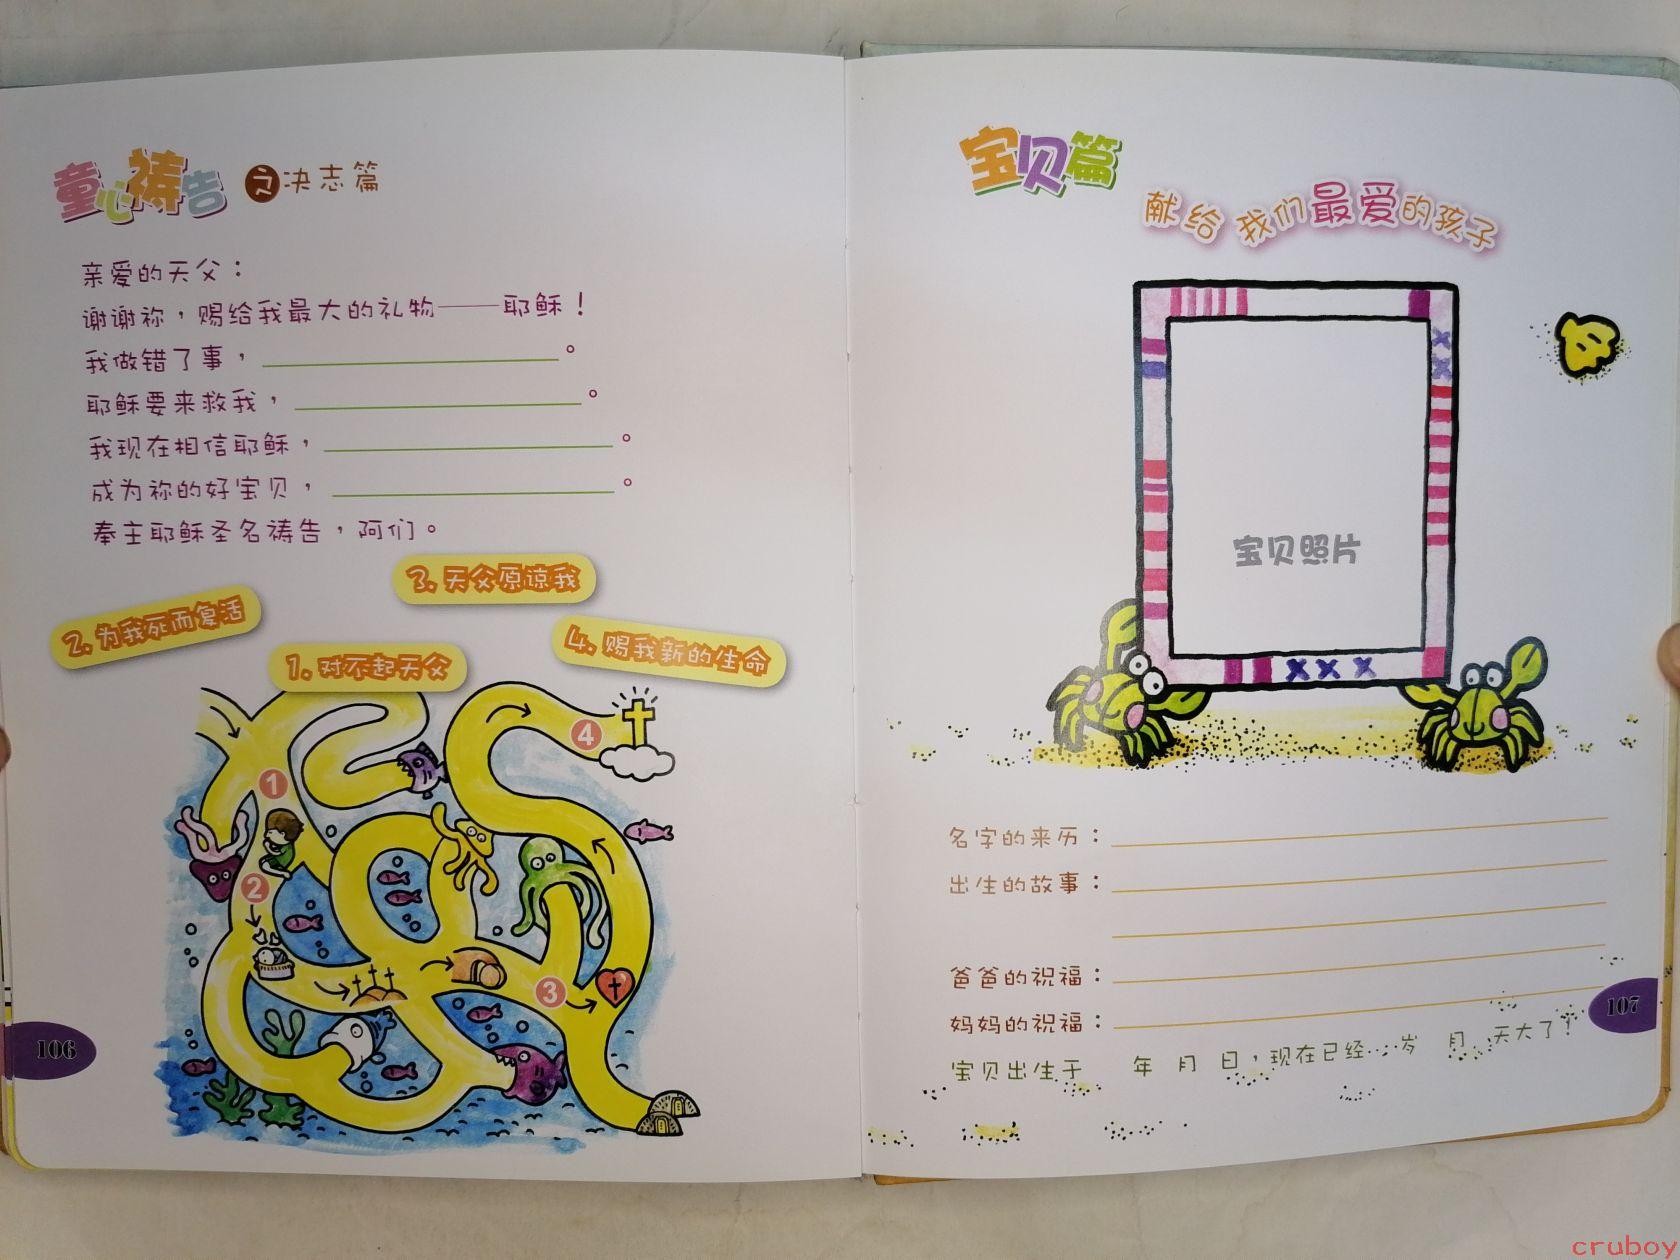 童心祷告之决志篇
亲爱的天父：
谢谢祢，赐给我最大的礼物——耶稣！
我做错了事，。
耶稣要来救我，。
我现在相信耶稣，。
成为祢的好宝贝，。
奉主耶稣圣名祷告，阿们。
3. 天父原谅我
2. 为我死而复活
1. 对不起天父
4. 赐我新的生命
4
1
2
3
106
宝贝篇
献给 我们最爱的孩子
宝贝照片
名字的来历：
出生的故事：
爸爸的祝福：
妈妈的祝福：
宝贝出生于 年 月 日，现在已经 岁 月 天大了！
107
cruboy